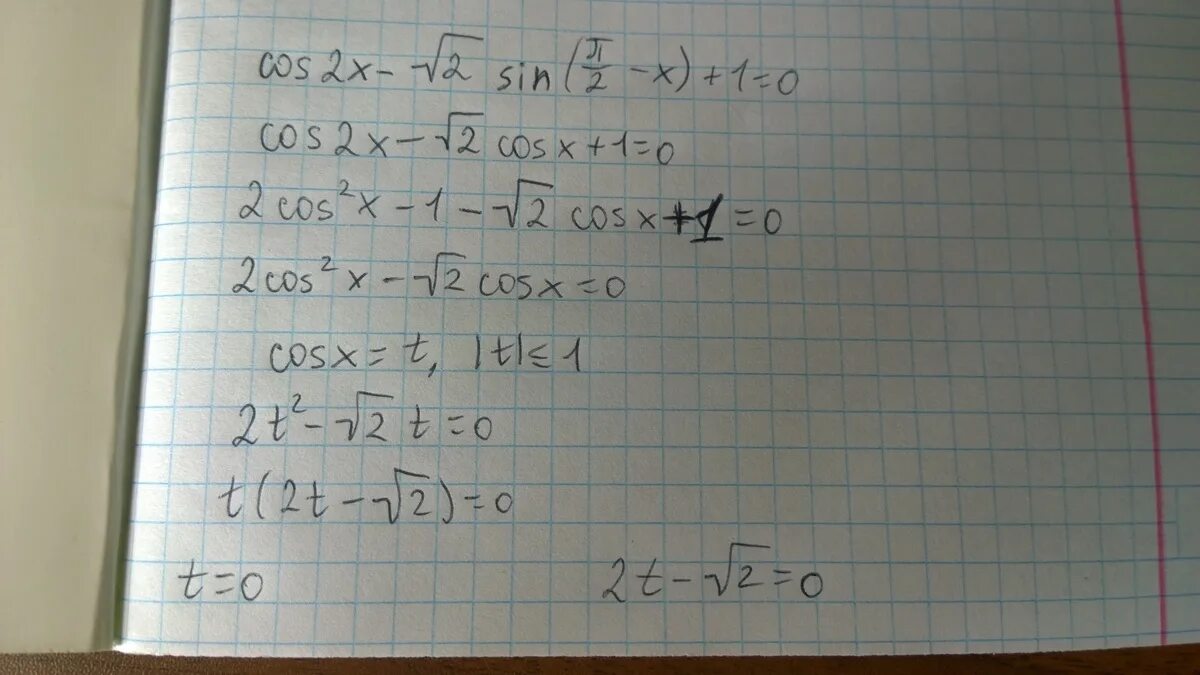 cos 2x - √2 sin(π/2 - x) + 1 = 0
cos 2x - √2 cos x + 1 = 0
2 cos²x - 1 - √2 cos x + 1 = 0
2 cos²x - √2 cos x = 0
cos x = t, |t| ≤ 1
2t² - √2 t = 0
t(2t - √2) = 0
t = 0 2t - √2 = 0